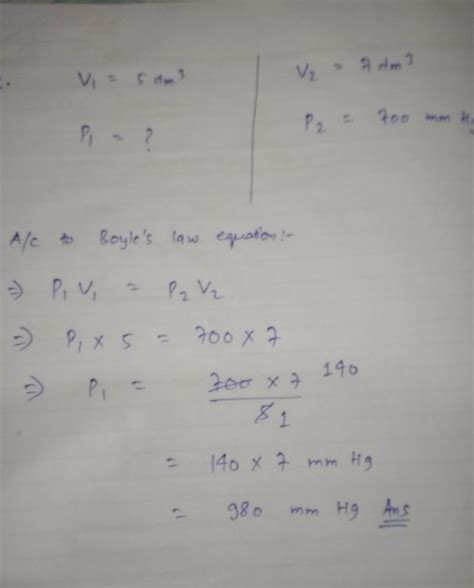 V₁ = 5 dm³
P₁ = ?
V₂ = 7 dm³
P₂ = 700 mm Hg
A/c to Boyle's law equation:-
⇒ P₁ V₁ = P₂ V₂
⇒ P₁ × 5 = 700 × 7
⇒ P₁ = 700 × 7 140
5 1
= 140 × 7 mm Hg
= 980 mm Hg Ans